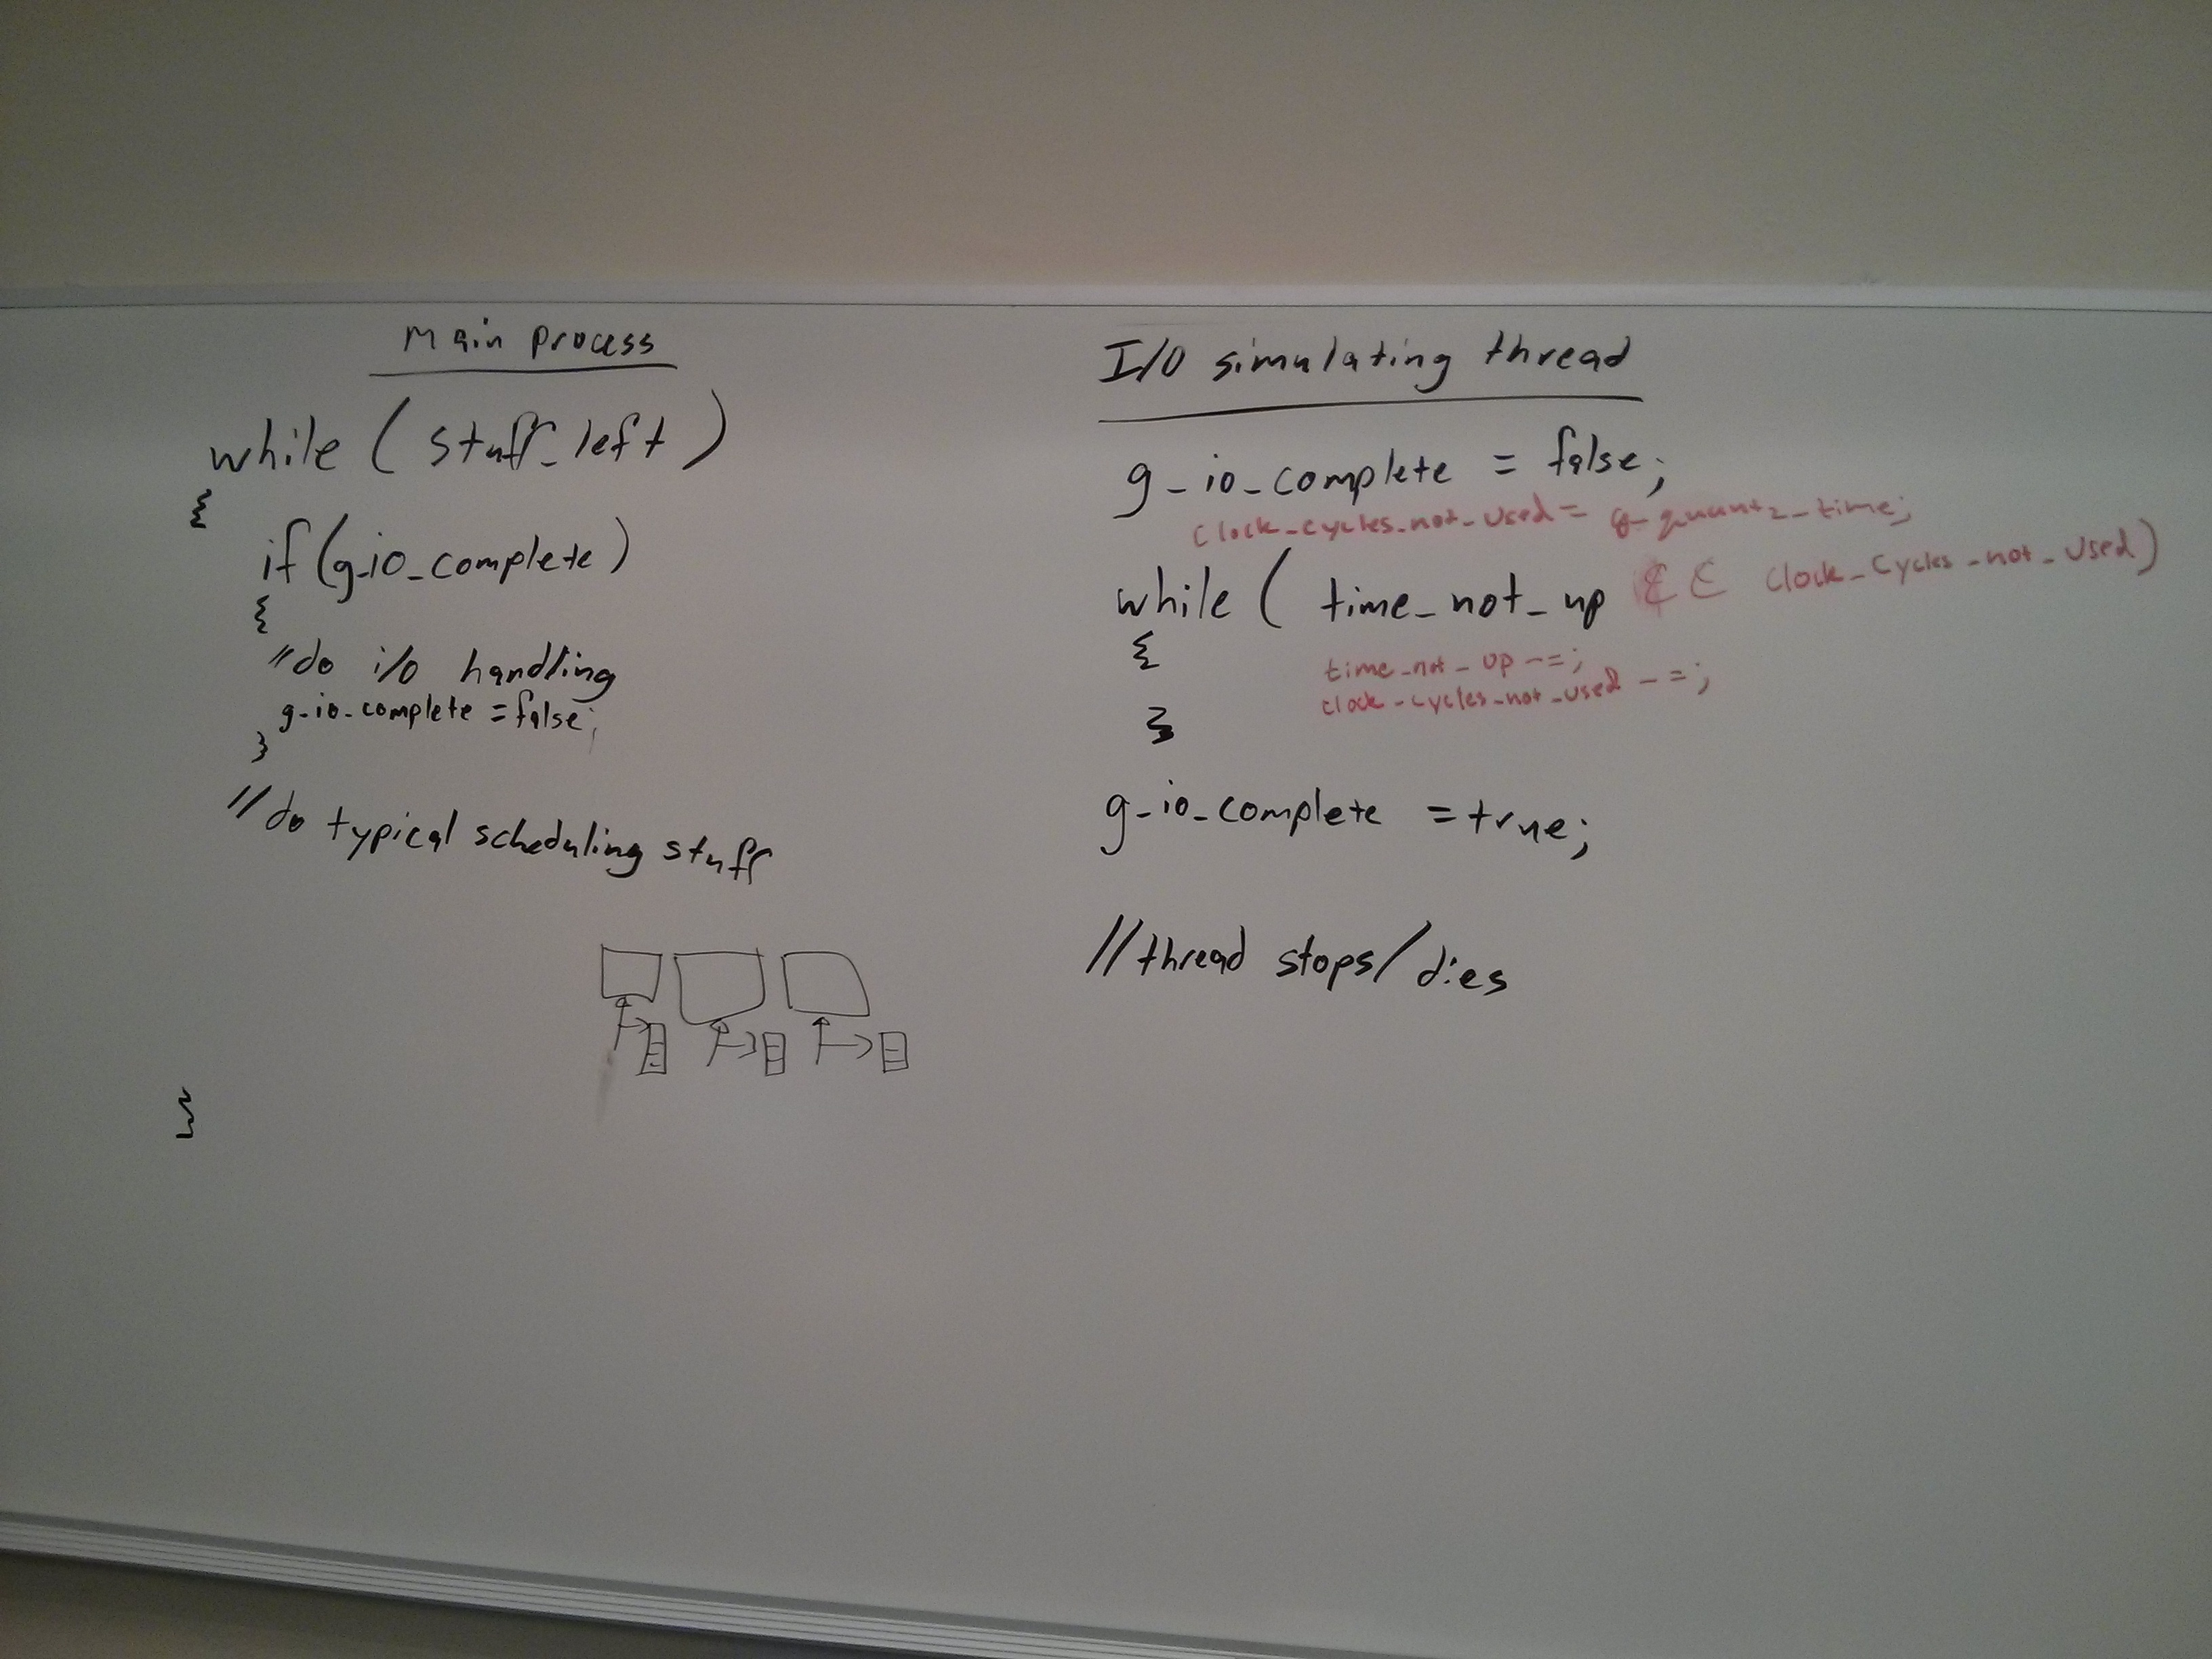 Main process
while ( stuff_left )
{
if (g_io_complete)
{
//do i/o handling
g_io_complete = false;
}
//do typical scheduling stuff
}
I/O simulating thread
g_io_complete = false;
clock_cycles_not_used = g_quanta_time;
while ( time_not_up && clock_cycles_not_used)
{
time_not_up -=;
clock_cycles_not_used -=;
}
g_io_complete = true;
//thread stops/dies